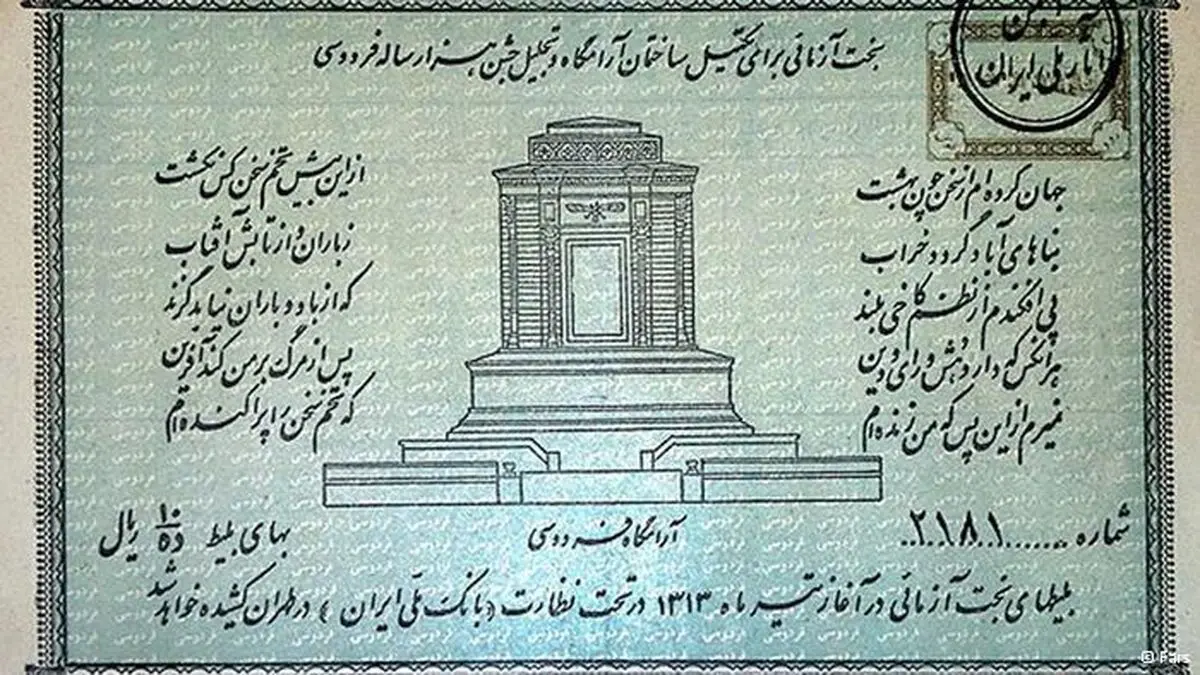 انجمن
آثار ملی ایران
بخت آزمائی برای تکمیل ساختمان آرامگاه و تجلیل جشن هزار ساله فردوسی
جهان کرده‌ام از سخن چون بهشت از این بیش تخم سخن کس نکشت
بناهای آباد گردد خراب ز باران و از تابش آفتاب
پی افکندم از نظم کاخی بلند که از باد و باران نیابد گزند
هر آنکس که دارد هش و رای و دین پس از مرگ بر من کند آفرین
نمیرم از این پس که من زنده‌ام که تخم سخن را پراکنده‌ام
آرامگاه فردوسی
شماره ........۲۱۸۱.. بهای بلیط ۱۰ ده ریال
بلیطهای بخت آزمائی در آغاز تیر ماه ۱۳۱۳ در تحت نظارت (بانک ملی ایران) در طهران کشیده خواهد شد
© Fars